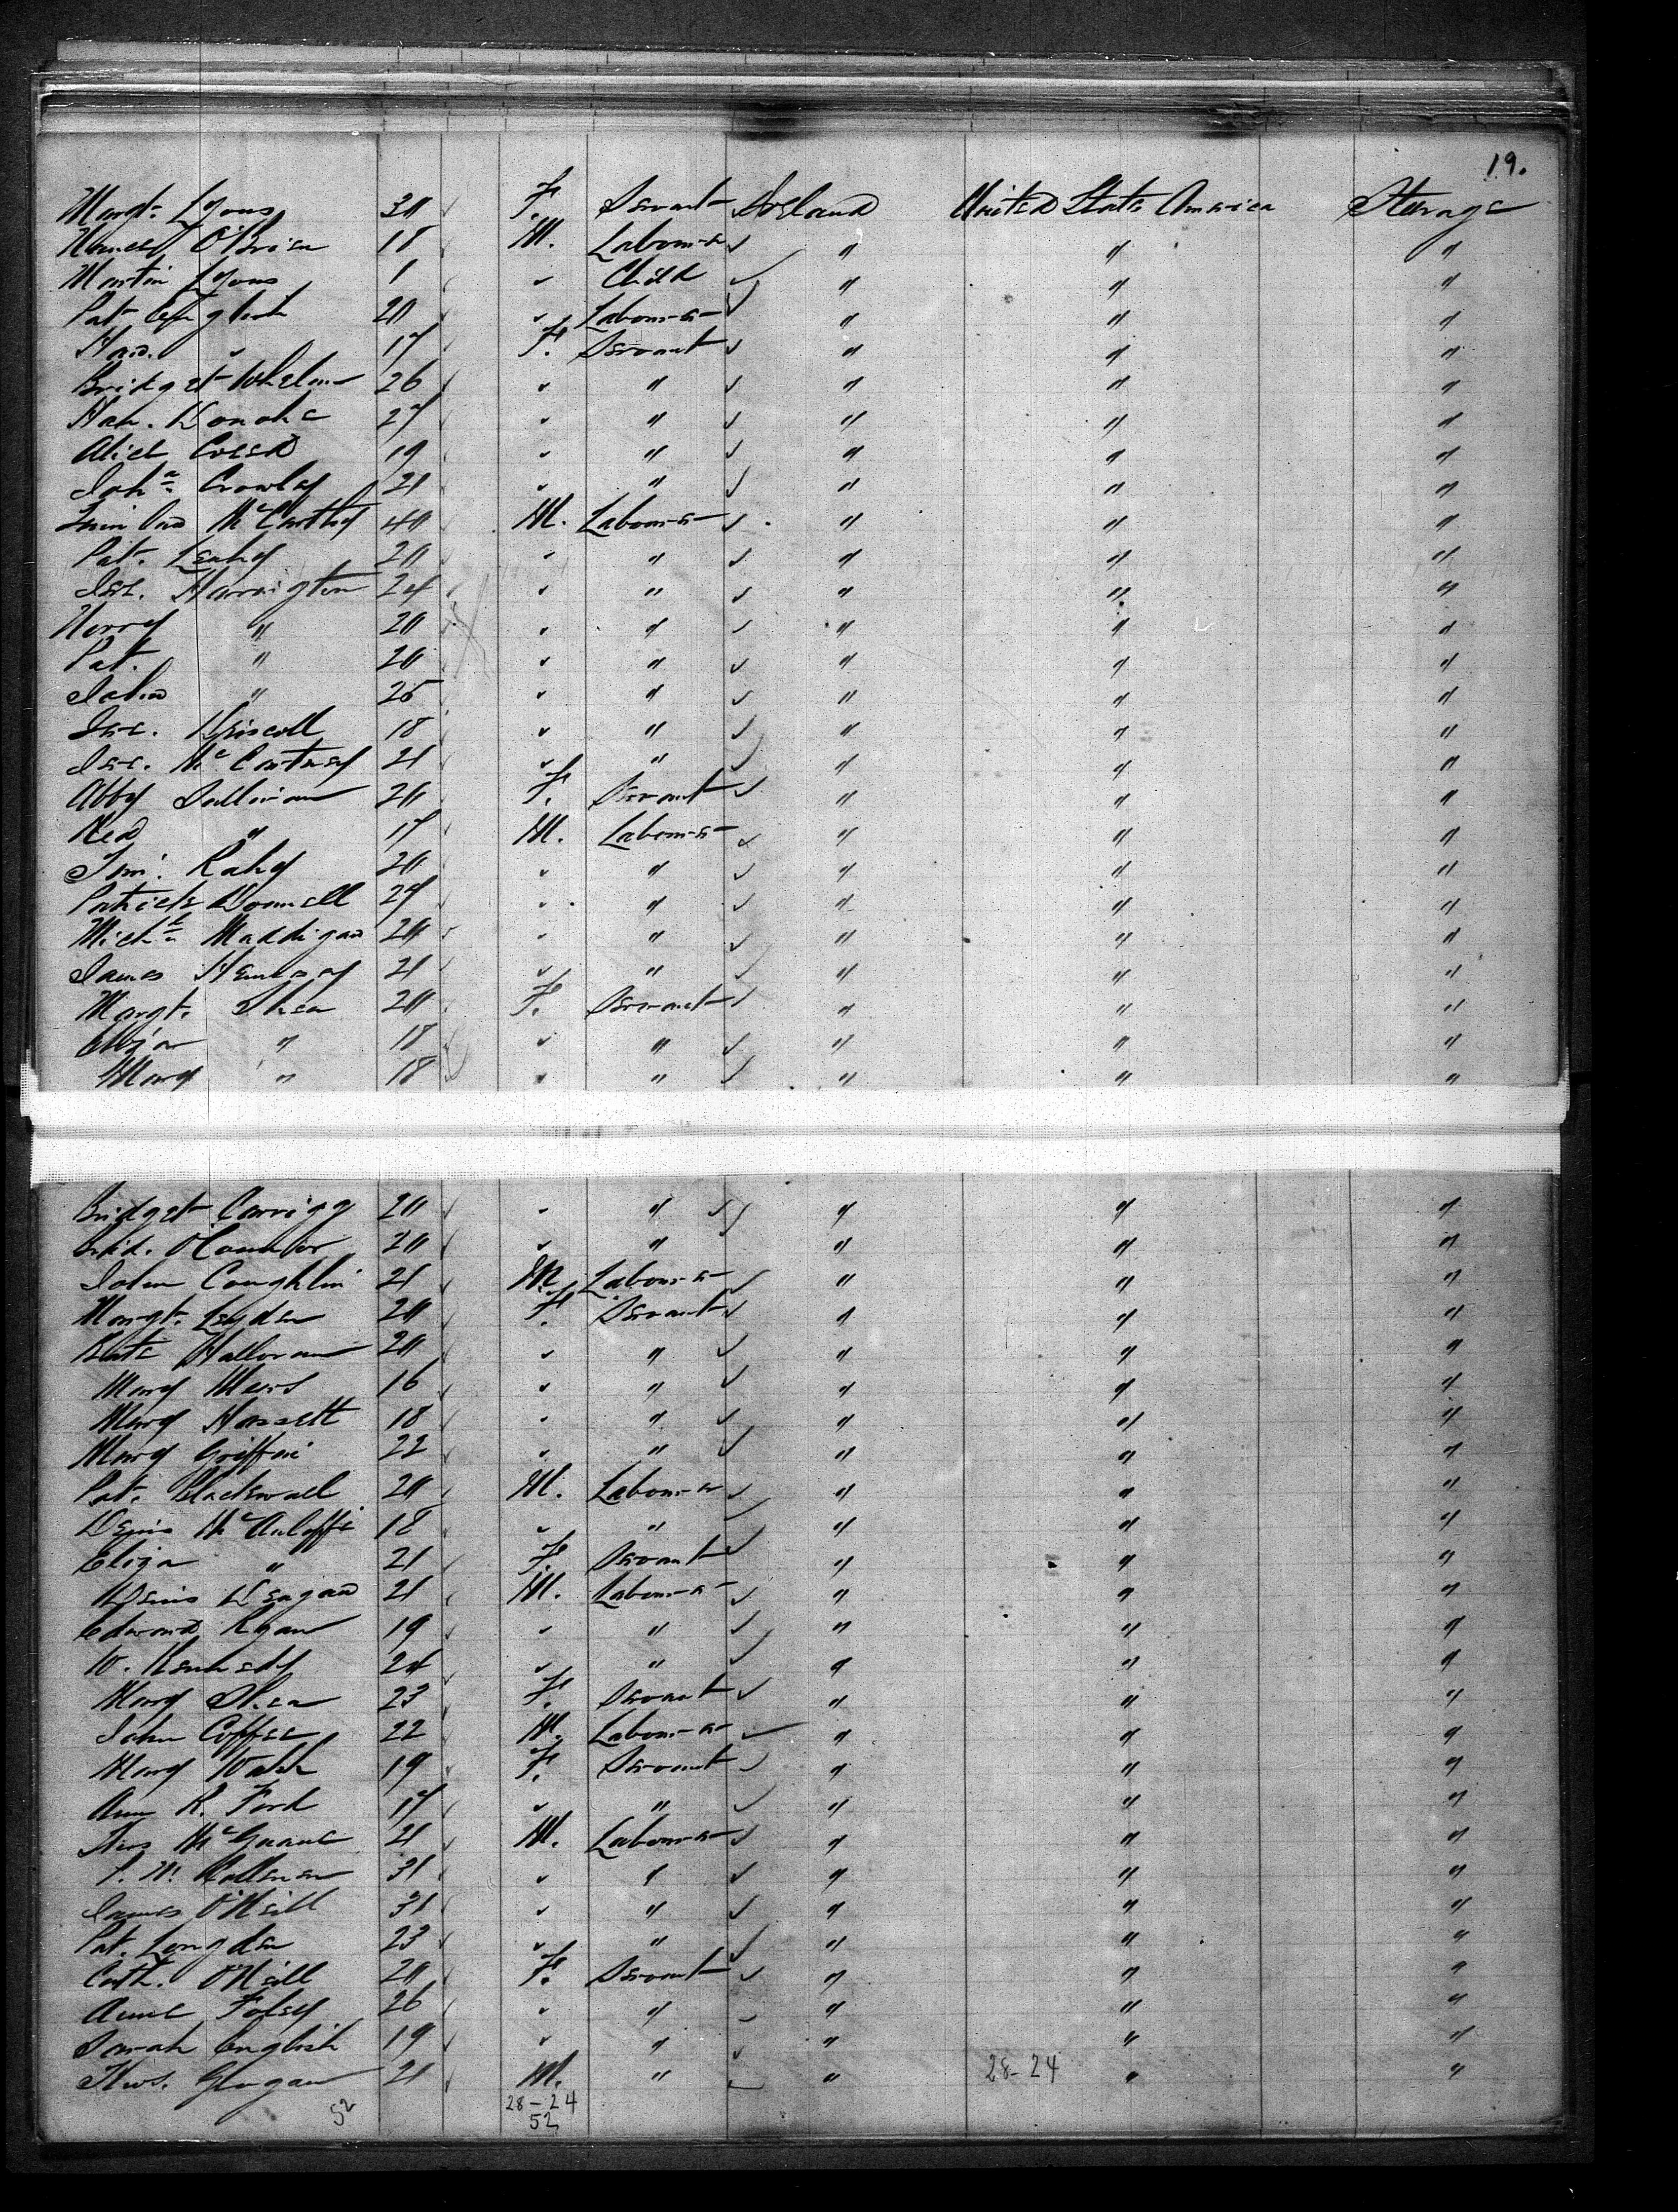 19.
Margt. Lyons 30 F. Servant Ireland United States America Steerage
James O'Brien 18 M. Labourer " " "
Martin Lyons 1 " Child " " "
Pat English 20 " Labourer " " "
Han. " 17 F. Servant " " "
Bridget Whelan 26 " " " " "
Han. Donohe 27 " " " " "
Alice Creed 19 " " " " "
Joha. Crowley 21 " " " " "
McCarthy 40 M. Labourer " " "
Pat. Leahy 20 " " " " "
Jer. Harrington 24 " " " " "
" 20 " " " " "
Pat. " 20 " " " " "
John " 25 " " " " "
Jer. Driscoll 18 " " " " "
Jer. McCartney 21 " " " " "
Abby Sullivan 20 F. Servant " " "
Ned " 17 M. Labourer " " "
Tim. Rahy 20 " " " " "
Patrick Donnell 27 " " " " "
Michl. Maddigan 20 " " " " "
James Hennesy 21 " " " " "
Margt. Shea 20 F. Servant " " "
Eliza " 18 " " " " "
Mary " 18 " " " " "
Bridget Carrigg 20 " " " " "
Brid. O'Connor 20 " " " " "
John Coughlin 21 M. Labourer " " "
Margt. Leyden 20 F. Servant " " "
Kate Halloran 20 " " " " "
Mary 16 " " " " "
Mary Hassett 18 " " " " "
Mary Griffin 22 " " " " "
Pat. Blackwall 20 M. Labourer " " "
Denis McAuliffe 18 " " " " "
Eliza " 21 F. Servant " " "
Denis Deagan 21 M. Labourer " " "
Edward Ryan 19 " " " " "
W. Kennedy 24 " " " " "
Mary Shea 23 F. Servant " " "
John Coffee 22 M. Labourer " " "
Mary Walsh 19 F. Servant " " "
Ann R. Ford 17 " " " " "
Thos McGuane 21 M. Labourer " " "
P. 31 " " " " "
James O'Neill 31 " " " " "
Pat. Longden 23 " " " " "
Cath. O'Neill 20 F. Servant " " "
Anne Foley 26 " " " " "
Sarah English 19 " " " " "
Thos. Grogan 21 M. " " 28-24 " "
52 28-24
52